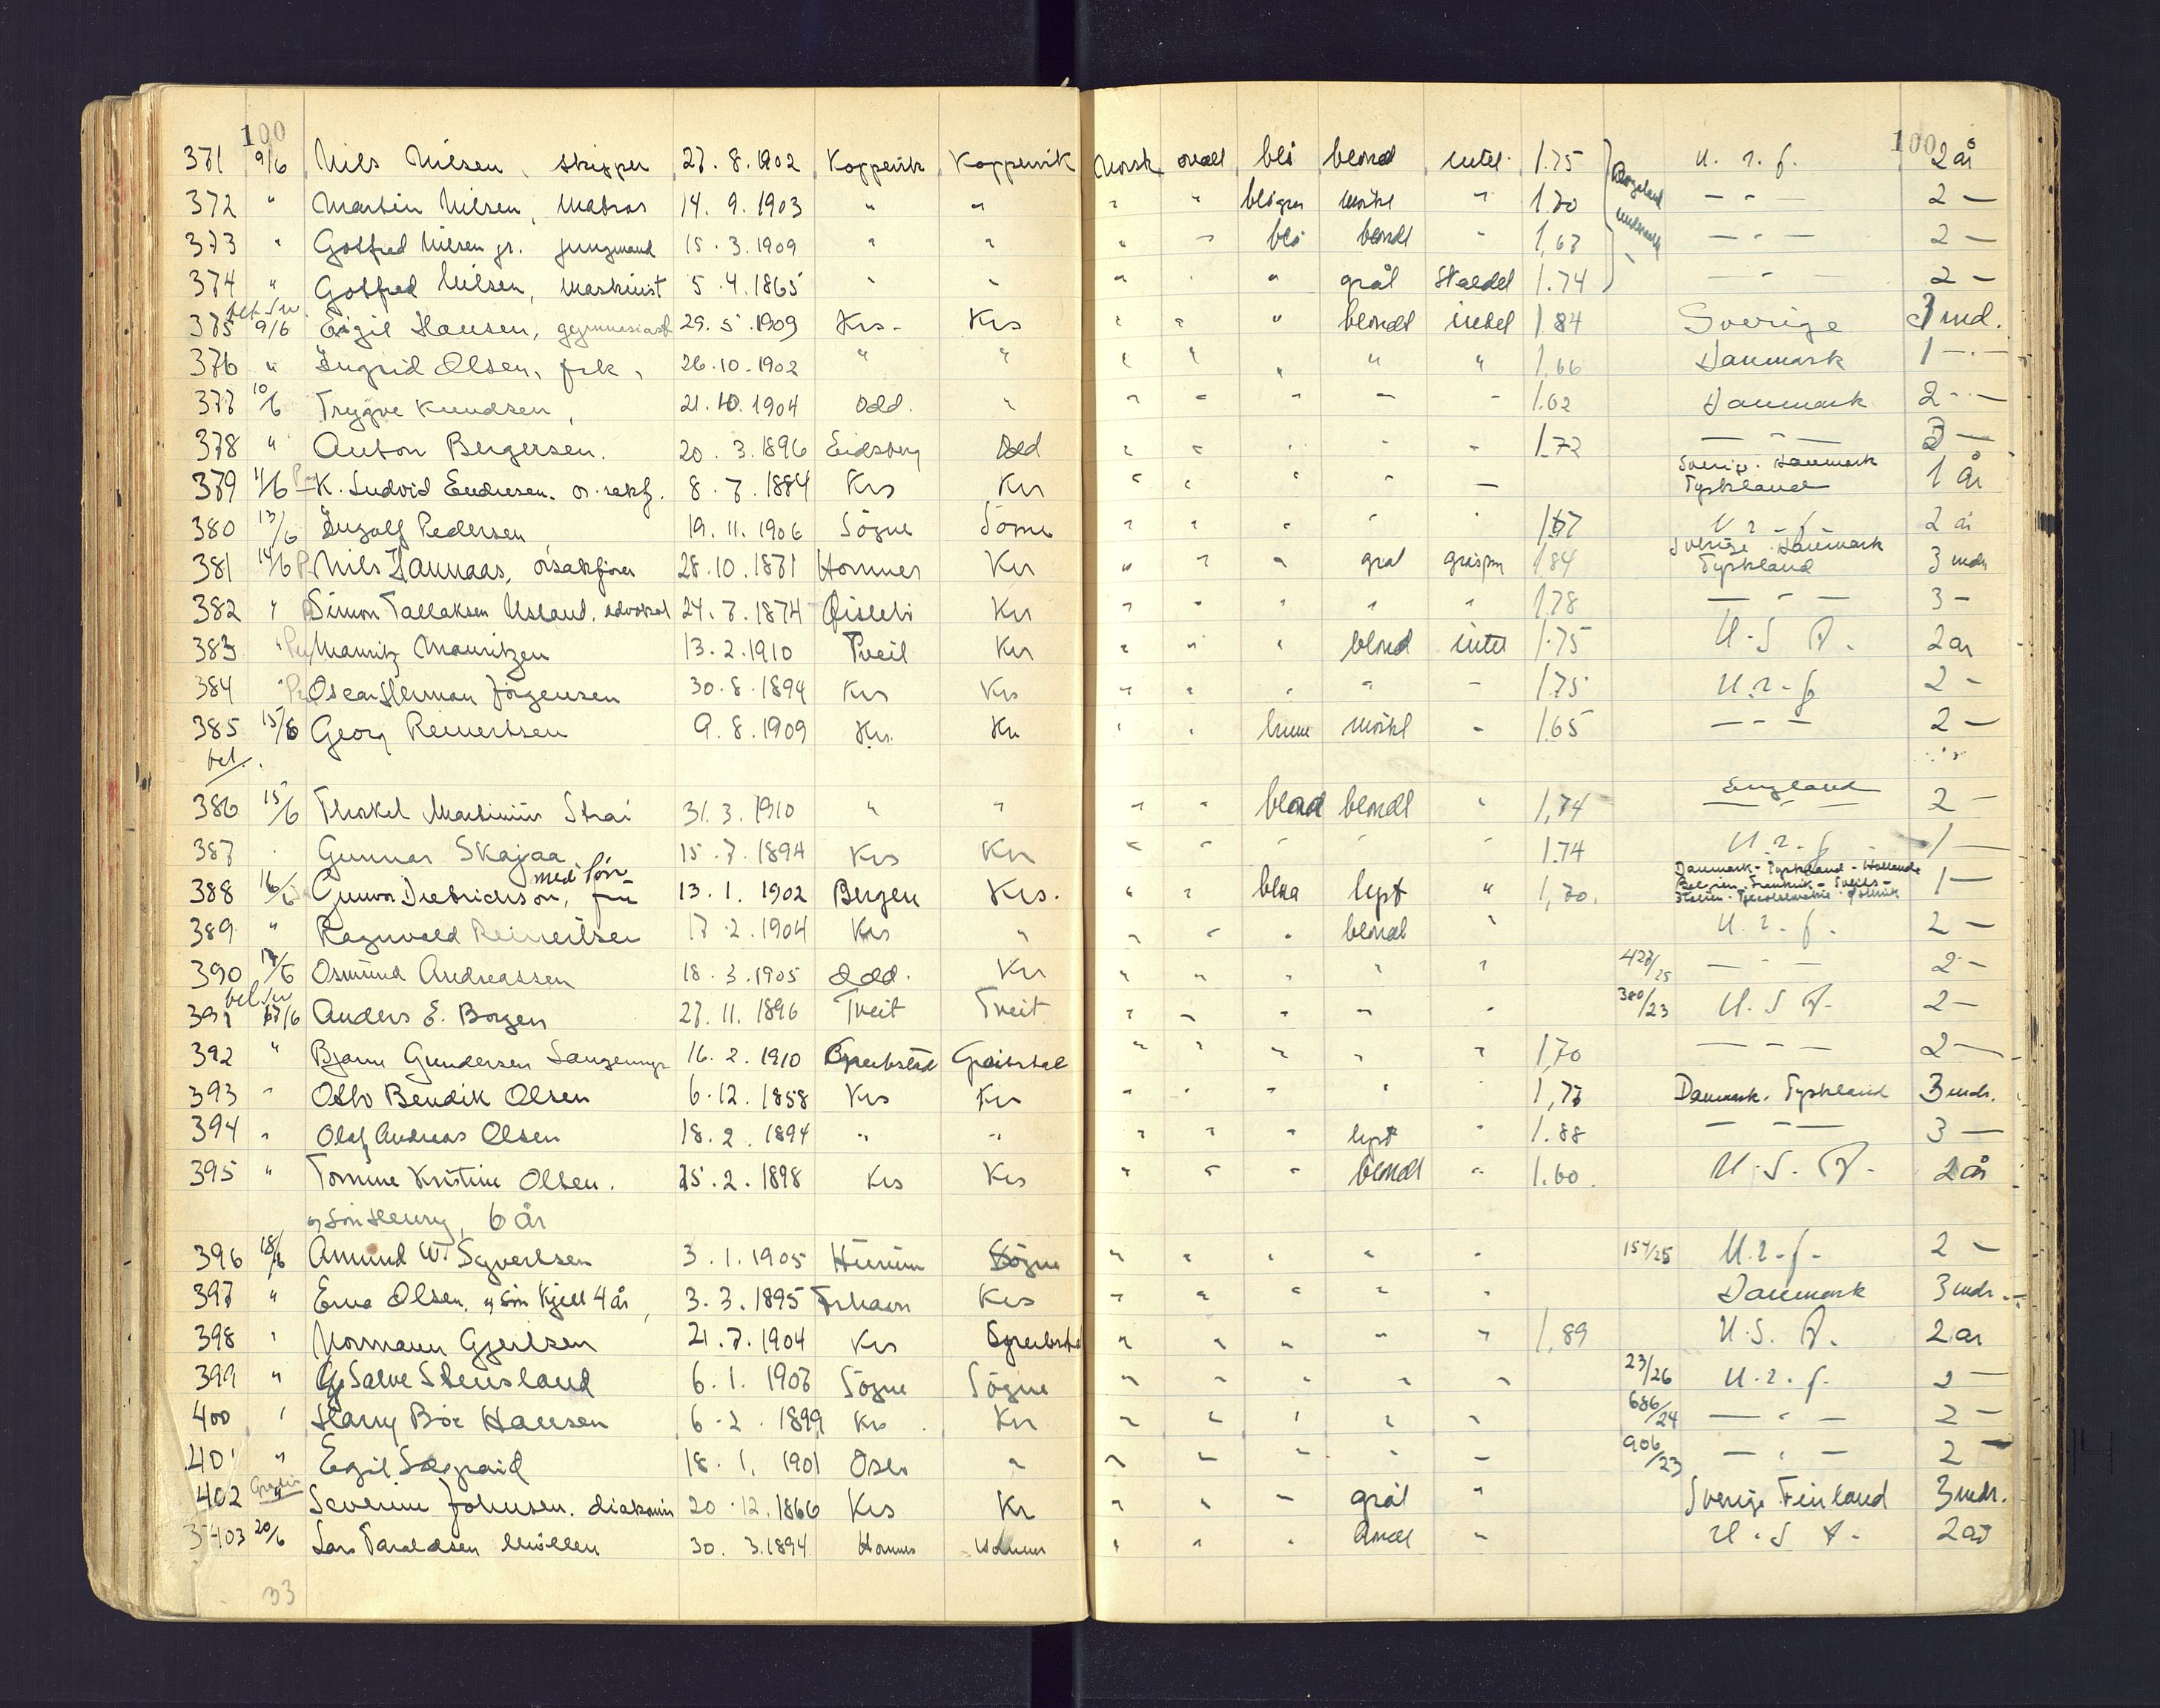 100 100
371 9/6 Nils Nilsen, skipper 27.8.1902 Koppervik Koppervik Norsk ovall blå blond intet 1.75 U. r. f. 2 år
372 " Martin Nilsen, Matros 14.9.1903 " " " " blågrå mörkt " 1.70 — " — 2 —
373 " Gotfred Nilsen jr. jungmand 15.3.1909 " " " " blå blondt " 1.67 — " — 2 —
374 " Gotfred Nilsen, Maskinist 5.4.1865 " " " " " grål Skaldel 1.74 — " — 2 —
375 9/6 Eigil Hansen, gymnasiast 29.5.1909 Krs. Krs " " " blondt intet 1.84 Sverige 3 md.
376 " Ingrid Olsen, frk, 26.10.1902 " " " " " " " 1.66 Danmark 1 — " —
377 10/6 Trygve Knudsen, 21.10.1904 Odd. " " " " " " 1.62 Danmark 2 - " -
378 " Anton Bergersen. 20.3.1896 Eidsberg Odd " " " " " 1.72 — " — 3 —
379 11/6 K. Ludvid Endresen. o. sakf. 8.7.1884 Krs Krs " " " " — Sverige. Danmark Tyskland 1 år
380 13/6 Ingolf Pedersen 19.11.1906 Sögne Sögne " " " " 1.67 U r f 2 år
381 14/6 Nils Hannaas, o'sakförer 28.10.1871 Hommes Krs " " " grål 1.84 Sverige. Danmark Tyskland 3 mdr
382 " Simon Tallaksen Usland. advokat 24.7.1874 Öislebö Krs " " " " " 1.78 — " — 3 -
383 " Mauritz Mauritzen 13.2.1910 Tveit Krs " " " blond intet 1.75 U.S A. 2 år
384 " Oscar Herman Jörgensen 30.8.1894 Krs Krs " " " " - 1.75 U.r.f 2 -
385 15/6 Georg Reinertsen 9.8.1909 Krs. Krs " " brune mörkt - 1.65 — " — 2 —
bet.
386 15/6 Thorkel Martinius Strai 31.3.1910 " " " " blond blondt " 1,74 England 2 —
387 " Gunnar Skajaa 15.7.1894 Krs Krs " " " " " 1.74 U.r.f 1 —
388 16/6 Gunvor Diedrichson, frü med sön 13.1.1902 Bergen Krs. " " blaa lyst " 1,70. Danmark - Tyskland - Holland Belgien. Frankrik - Sveits - Italien - Tjecoslovakia - Östrik 1 —
389 " Ragnvald Reinertsen 17.2.1904 Krs " " " " blondt " U.r.f. 2 —
390 17/6 Osmund Andreassen 18.3.1905 Odd. Krs " " " " " 427/25 — " — 2 -
391 17/6 Anders E. Borgen 27.11.1896 Tveit Tveit " " " " " 380/23 U.S A. 2 —
392 " Bjarne Gundersen 16.2.1910 " " " " " 1,70 — " — 2 —
393 " Otto Bendik Olsen 6.12.1858 Krs Krs " " " " 1,77 Danmark. Tyskland 3 mdr.
394 " Olaf Andreas Olsen 18.2.1894 " " " " " lyst " 1.88 — " — 3 —
395 " Tomine Kristine Olsen. 25.2.1898 Krs Krs " " " blondt " 1.60. U.S.A. 2 år
og sön Henry, 6 år
396 18/6 Amund W. Syvertsen 3.1.1905 Hurum Sögne " " " " " 154/25 U.r.f. 2 —
397 " Erna Olsen, og sön Kjell 4 år, 3.3.1895 Krs " " " " " Danmark 3 mdr.
398 " Normann Gjertsen 21.7.1904 Krs " " " " " 1,89 U.S. A. 2 år
399 " G. Salve Stensland 6.1.1907 Sögne Sögne " " " " " 23/26 U.r.f. 2 —
400 " Harry Boe Hansen 6.2.1899 Krs. Krs " " " " " 686/24 — " — 2 —
401 " Egil 18.1.1901 Oslo " " " " " " 906/23 — " — 2 —
402 " Severine Johnsen. diakonis 20.12.1866 Krs Kr " " " grål " Sverige. Finland 3 mdr.
403 20/6 Lars Taraldsen Möllen 30.3.1894 Homme Homme " " " blondt " U.S A. 2 år
33